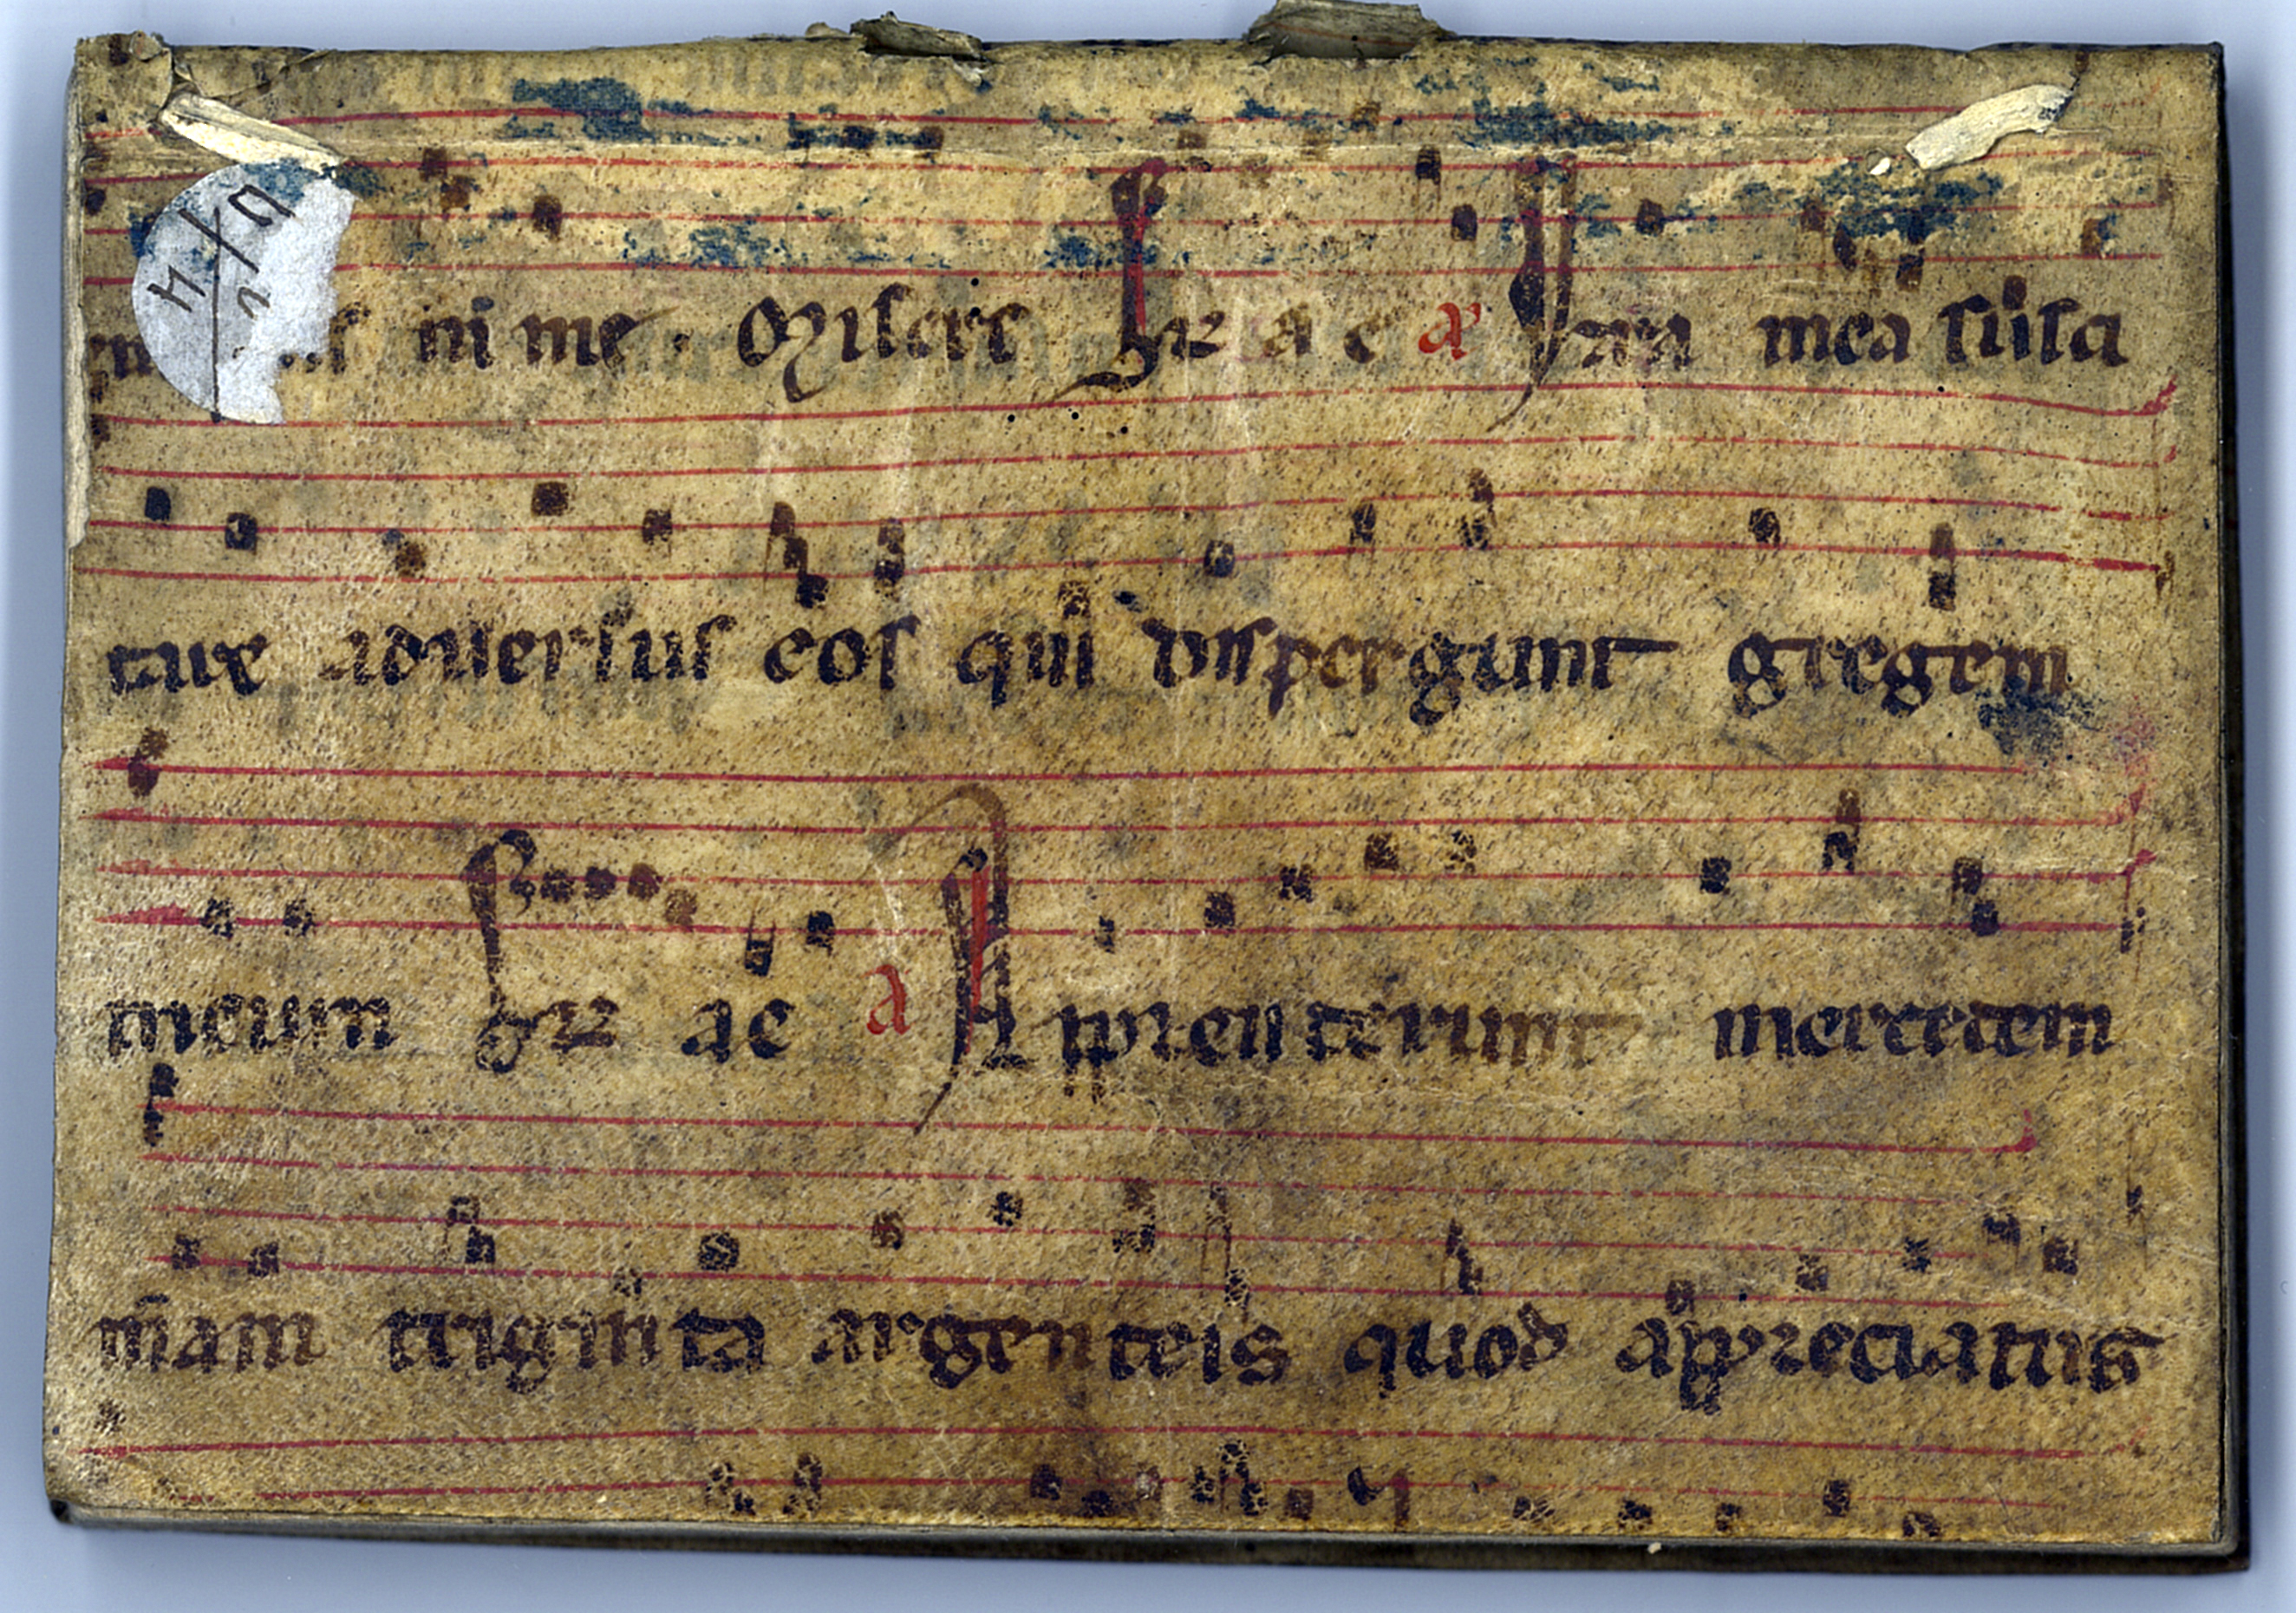 ni me · Miserere Gra a e a Ira mea susci
tata adversus eos qui dispergunt gregem
meum gra ae a Appenderunt mercedem
m̄am triginta argenteis quod appreciatus